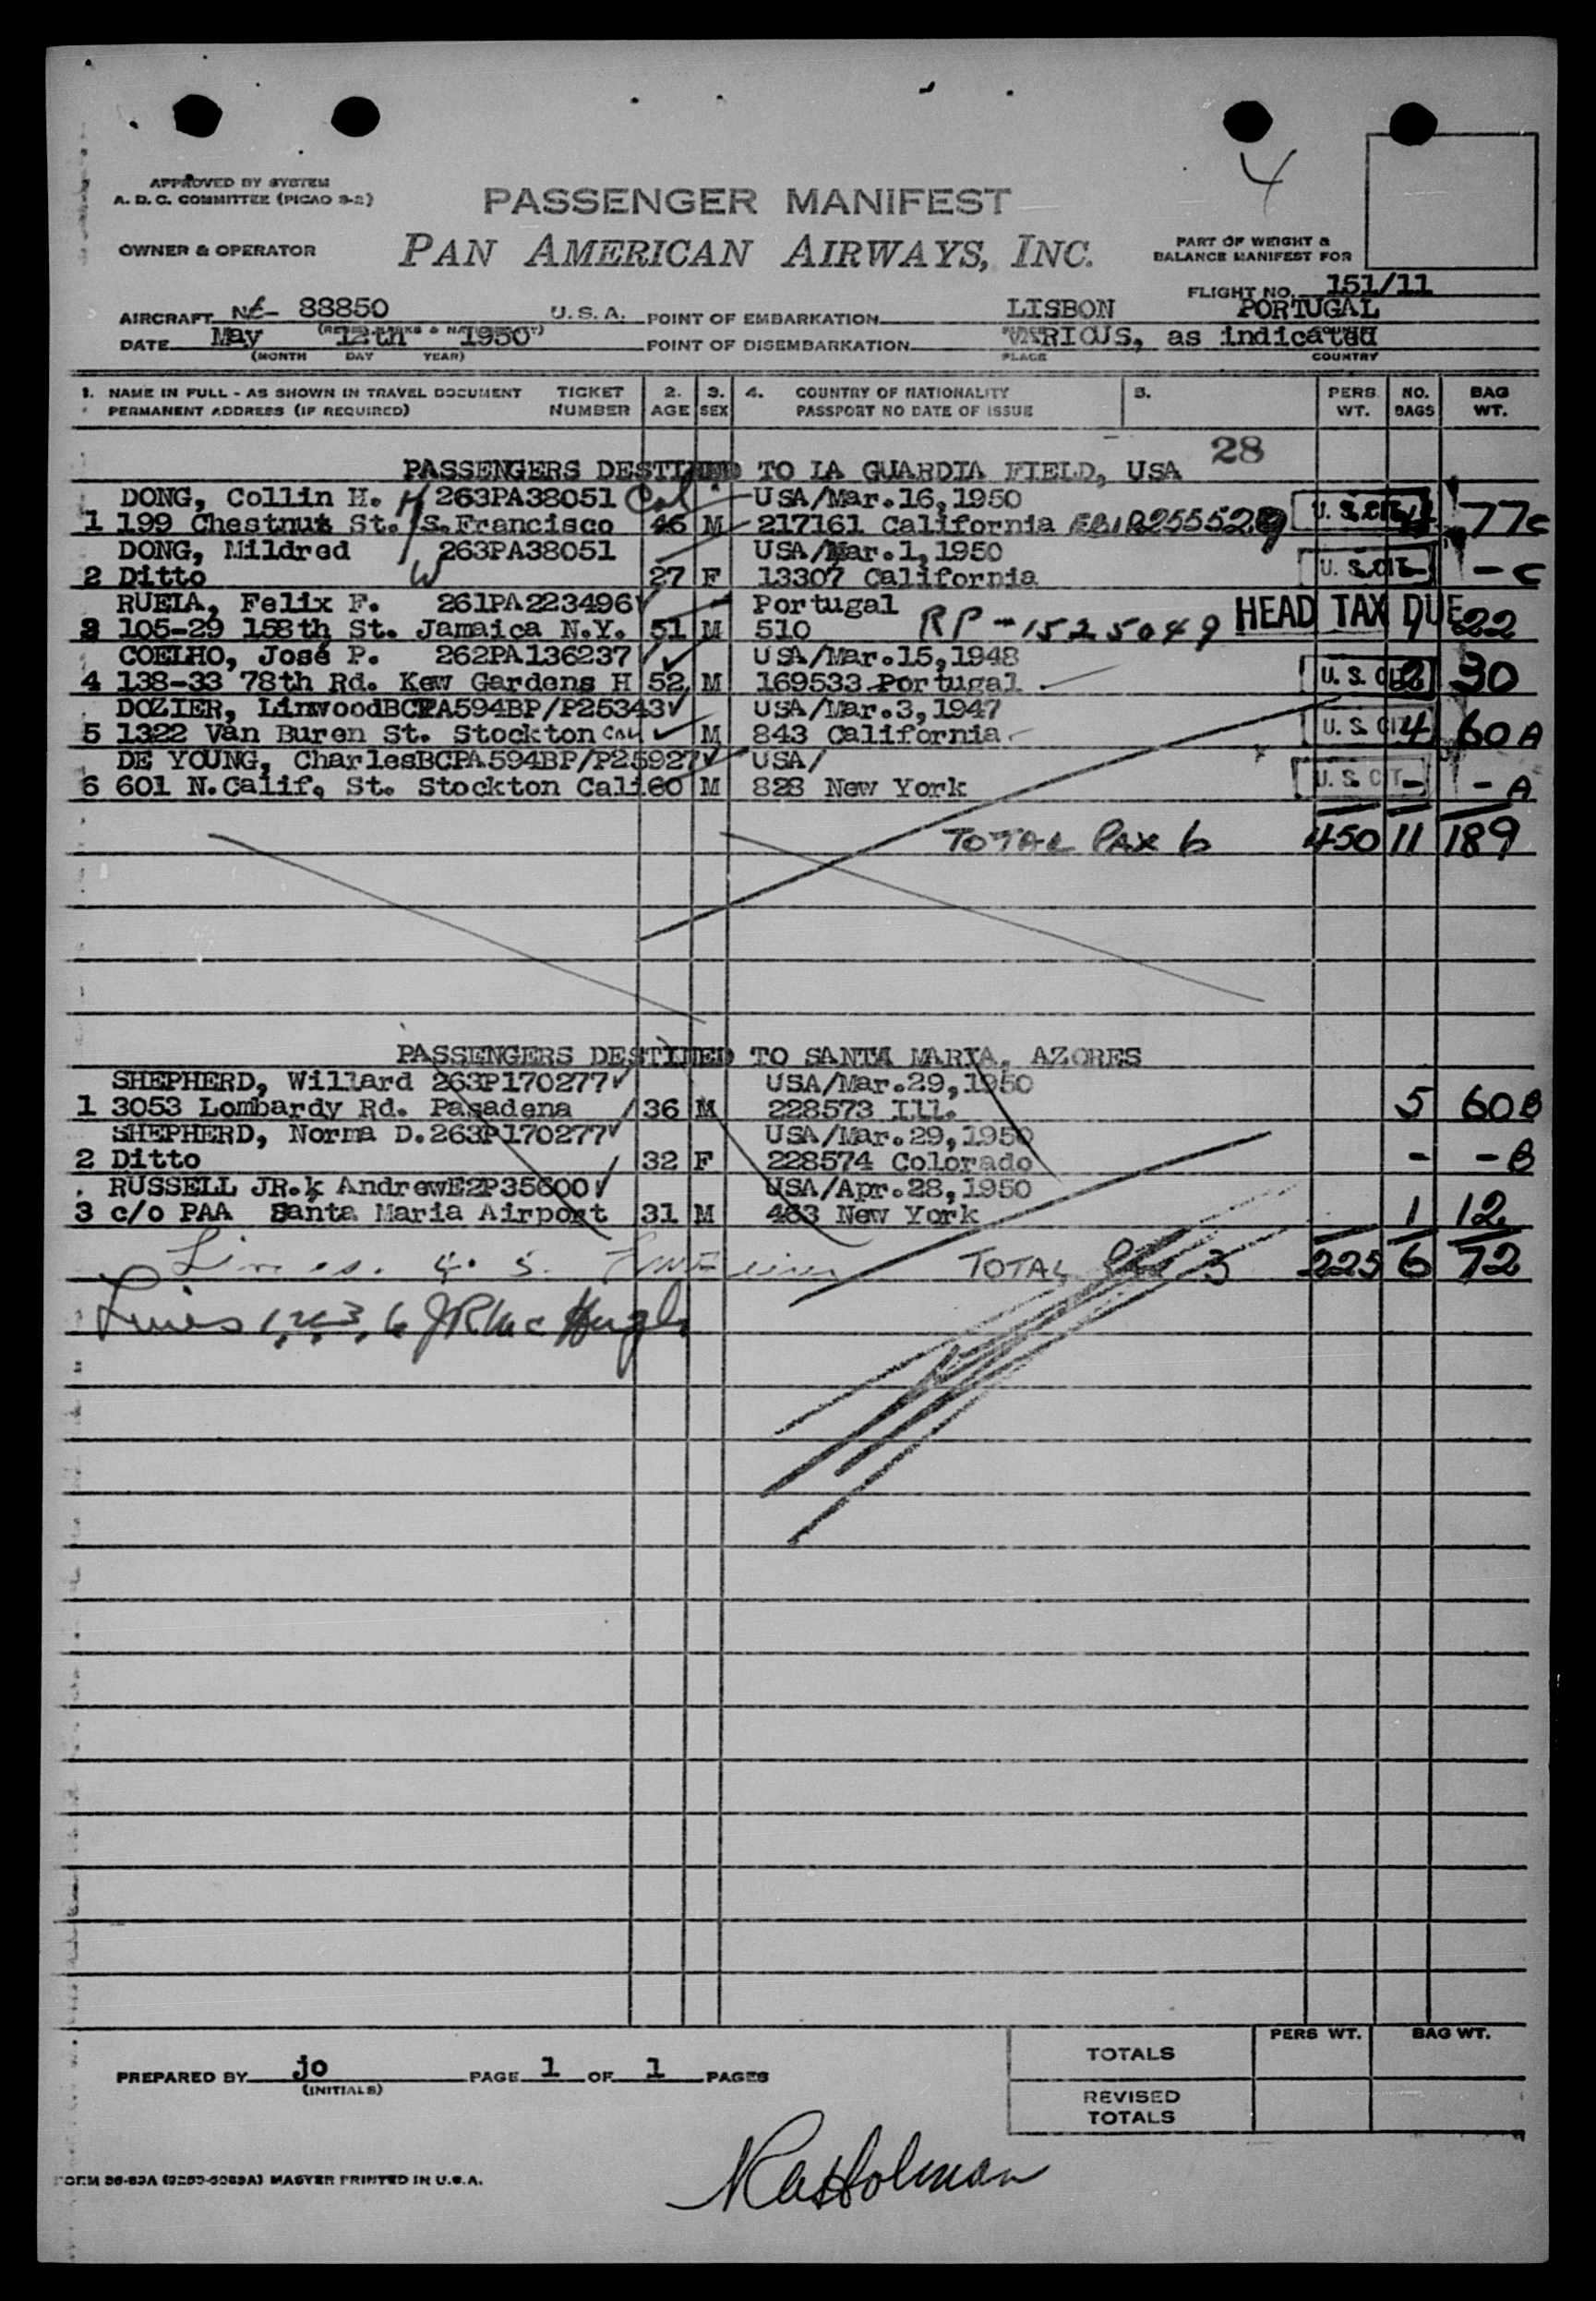 4
APPROVED BY SYSTEM
A. D. C. COMMITTEE (PICAO 3-2)
PASSENGER MANIFEST
OWNER & OPERATOR PAN AMERICAN AIRWAYS, INC.
PART OF WEIGHT &
BALANCE MANIFEST FOR
FLIGHT NO. 151/11
AIRCRAFT 88850 U.S.A. POINT OF EMBARKATION LISBON PORTUGAL
DATE May 12th 1950 POINT OF DISEMBARKATION VARIOUS, as indicated
(MONTH DAY YEAR) PLACE COUNTRY
1. NAME IN FULL - AS SHOWN IN TRAVEL DOCUMENT TICKET 2. 3. 4. COUNTRY OF NATIONALITY 5. PERS. NO. BAG
PERMANENT ADDRESS (IF REQUIRED) NUMBER AGE SEX PASSPORT NO DATE OF ISSUE WT. BAGS WT.
28
PASSENGERS DESTINED TO LA GUARDIA FIELD, USA
DONG, Collin H. H 263PA38051 Cal USA/Mar.16,1950
1 199 Chestnut St. S.Francisco 46 M 217161 California U. S. CIT. 4 77c
DONG, Mildred 263PA38051 USA/Mar.1,1950
2 Ditto W 27 F 13307 California U. S. CIT. - - c
RUELA, Felix F. 261PA223496 Portugal
3 105-29 158th St. Jamaica N.Y. 51 M 510 RP-1525049 HEAD TAX DUE 22
COELHO, José P. 262PA136237 USA/Mar.15,1948
4 138-33 78th Rd. Kew Gardens H 52 M 169533 Portugal U. S. CIT. 2 30
DOZIER, LinwoodBCPA594BP/P25343 USA/Mar.3,1947
5 1322 Van Buren St. Stockton CAL M 843 California U. S. CIT. 4 60 A
DE YOUNG, CharlesBCPA594BP/P25927 USA/
6 601 N.Calif. St. Stockton Cali 60 M 828 New York U. S. CIT. - - A
TOTAL PAX 6 450 11 189
PASSENGERS DESTINED TO SANTA MARIA, AZORES
SHEPHERD, Willard 263P170277 USA/Mar.29,1950
1 3053 Lombardy Rd. Pasadena 36 M 228573 Ill. 5 60B
SHEPHERD, Norma D.263P170277 USA/Mar.29,1950
2 Ditto 32 F 228574 Colorado - - B
RUSSELL JR.k AndrewE2P35600 USA/Apr.28,1950
3 c/o PAA Santa Maria Airport 31 M 463 New York 1 12
Lines. 4. 5. TOTAL PAX 3 225 6 72
Lines 1, 2, 3, 6 JR McHugh
PERS WT. BAG WT.
TOTALS
PREPARED BY jo PAGE 1 OF 1 PAGES
(INITIALS)
REVISED
TOTALS
FORM MASTER PRINTED IN U.S.A.